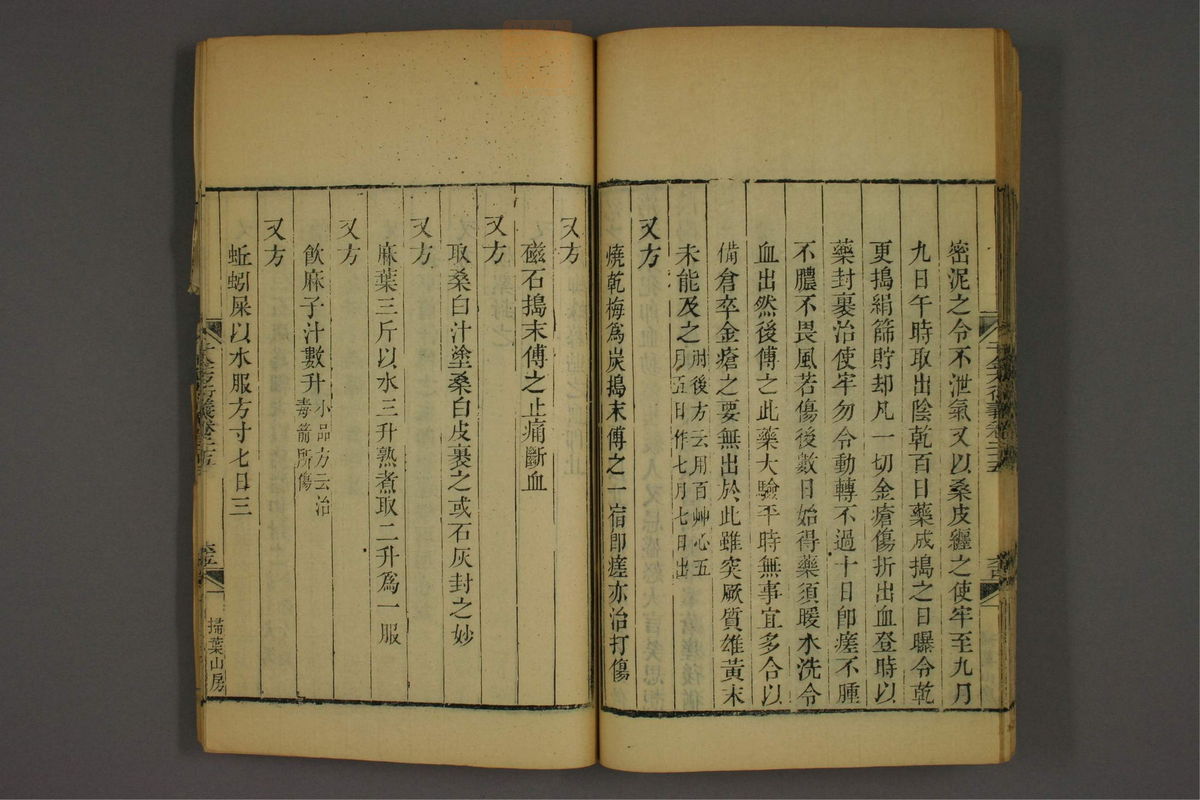 密泥之令不泄氣又以桑皮纒之使牢至九月
九日午時取出陰乾百日藥成搗之日曝令乾
更搗絹篩貯却凡一切金瘡傷折出血登時以
藥封裹治使牢勿令動轉不過十日即瘥不腫
不膿不畏風若傷後數日始得藥須暖水洗令
血出然後傅之此藥大驗平時無事宜多合以
備倉卒金瘡之要無出於此雖突厥質雄黃末
未能及之肘後方云用百艸心五
月五日作七月七日出
又方
燒乾梅爲炭搗末傅之一宿即瘥亦治打傷
又方
磁石搗末傅之止痛斷血
又方
取桑白汁塗桑白皮裹之或石灰封之妙
又方
麻葉三斤以水三升熟煮取二升爲一服
又方
飲麻子汁數升小品方云治
毒箭所傷
又方
蚯蚓屎以水服方寸七日三
千金方衍義卷二十五
掃葉山房